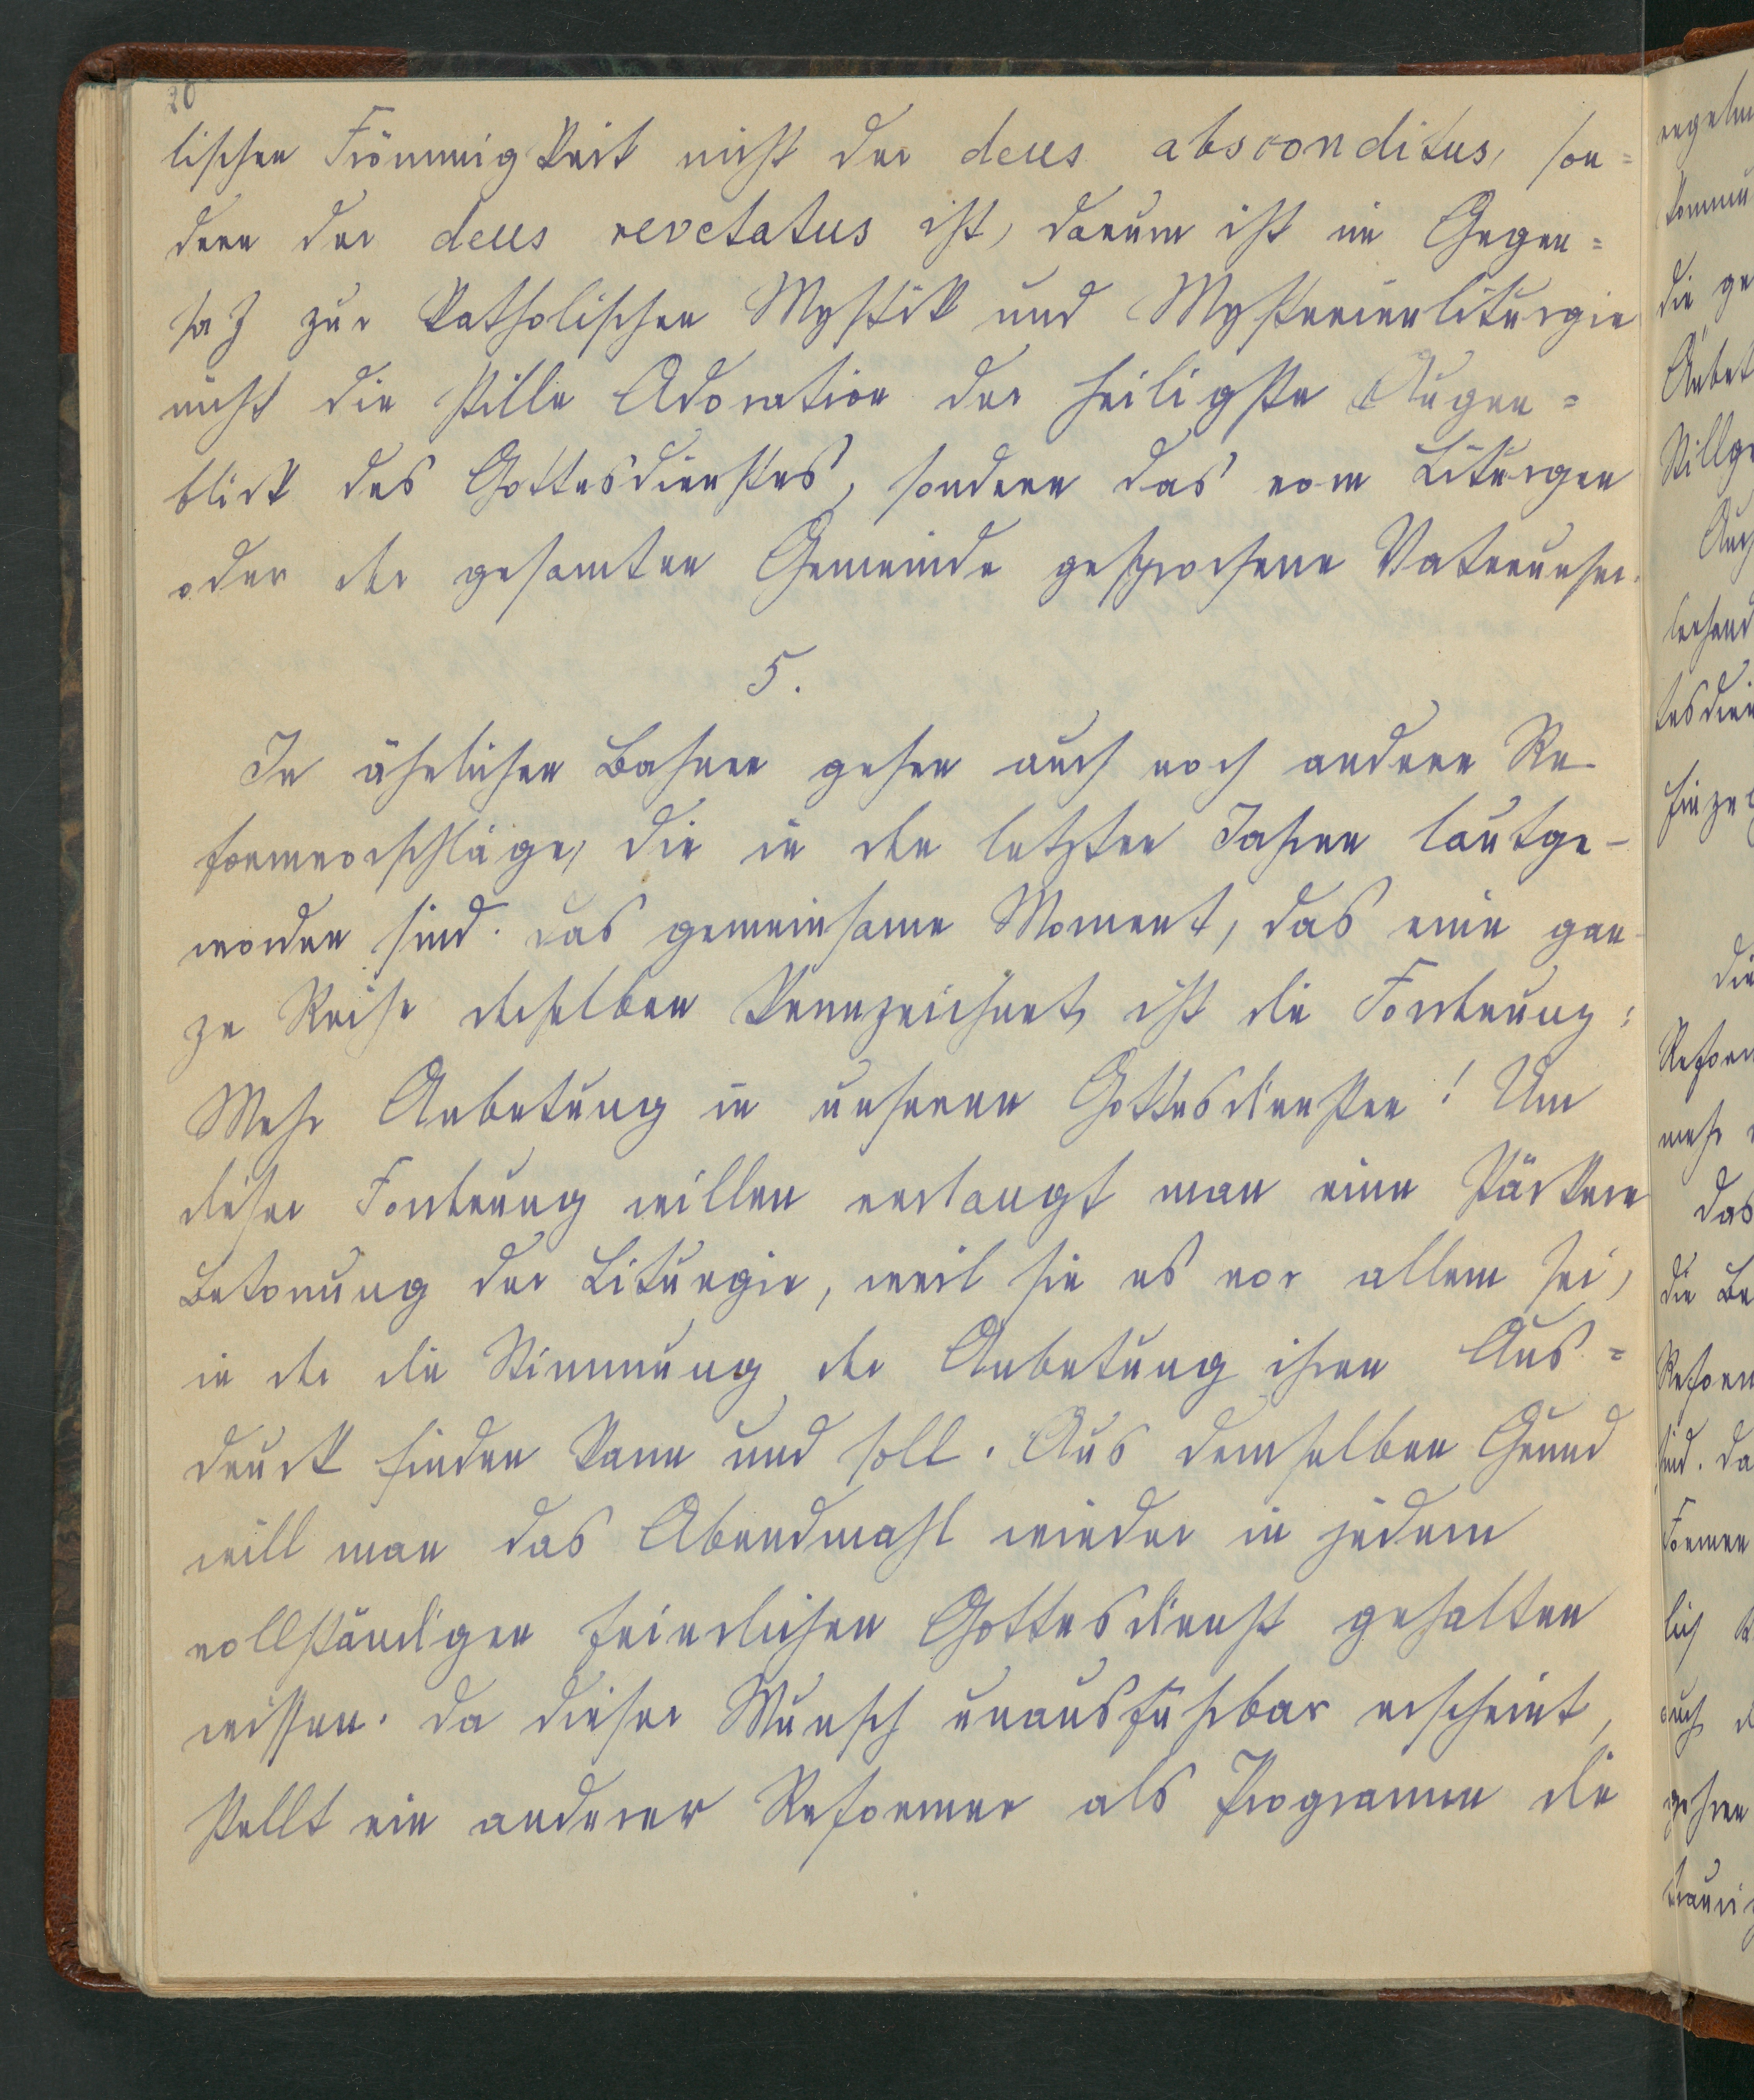 20
lischen Frömmigkeit nicht der deus absconditus, son=
dern der deus revelatus ist, darum ist im Gegen=
satz zur katholischen Mystik und Mysterienliturgie
nicht die stille Adoration der heiligste Augen=
blick des Gottesdienstes, sondern das vom Liturgen
oder der gesamten Gemeinde gesprochene Vaterunser.
5.
In ähnlichen Bahnen gehen auch noch andere Re-
formvorschläge, die in den letzten Jahren lautge-
worden sind. Das gemeinsame Moment, das eine gan-
ze Reihe derselben kennzeichnet, ist die Forderung:
Mehr Anbetung in unseren Gottesdiensten! Um
dieser Forderung willen verlangt man eine stärkere
Betonung der Liturgie, weil sie es vor allem sei,
in der die Stimmung der Anbetung ihren Aus=
druck finden kann und soll. Aus demselben Grund
will man das Abendmahl wieder in jedem
vollständigen feierlichen Gottesdienst gehalten
wissen. Da dieser Wunsch unausführbar erscheint,
stellt ein anderer Reformer als Programm die